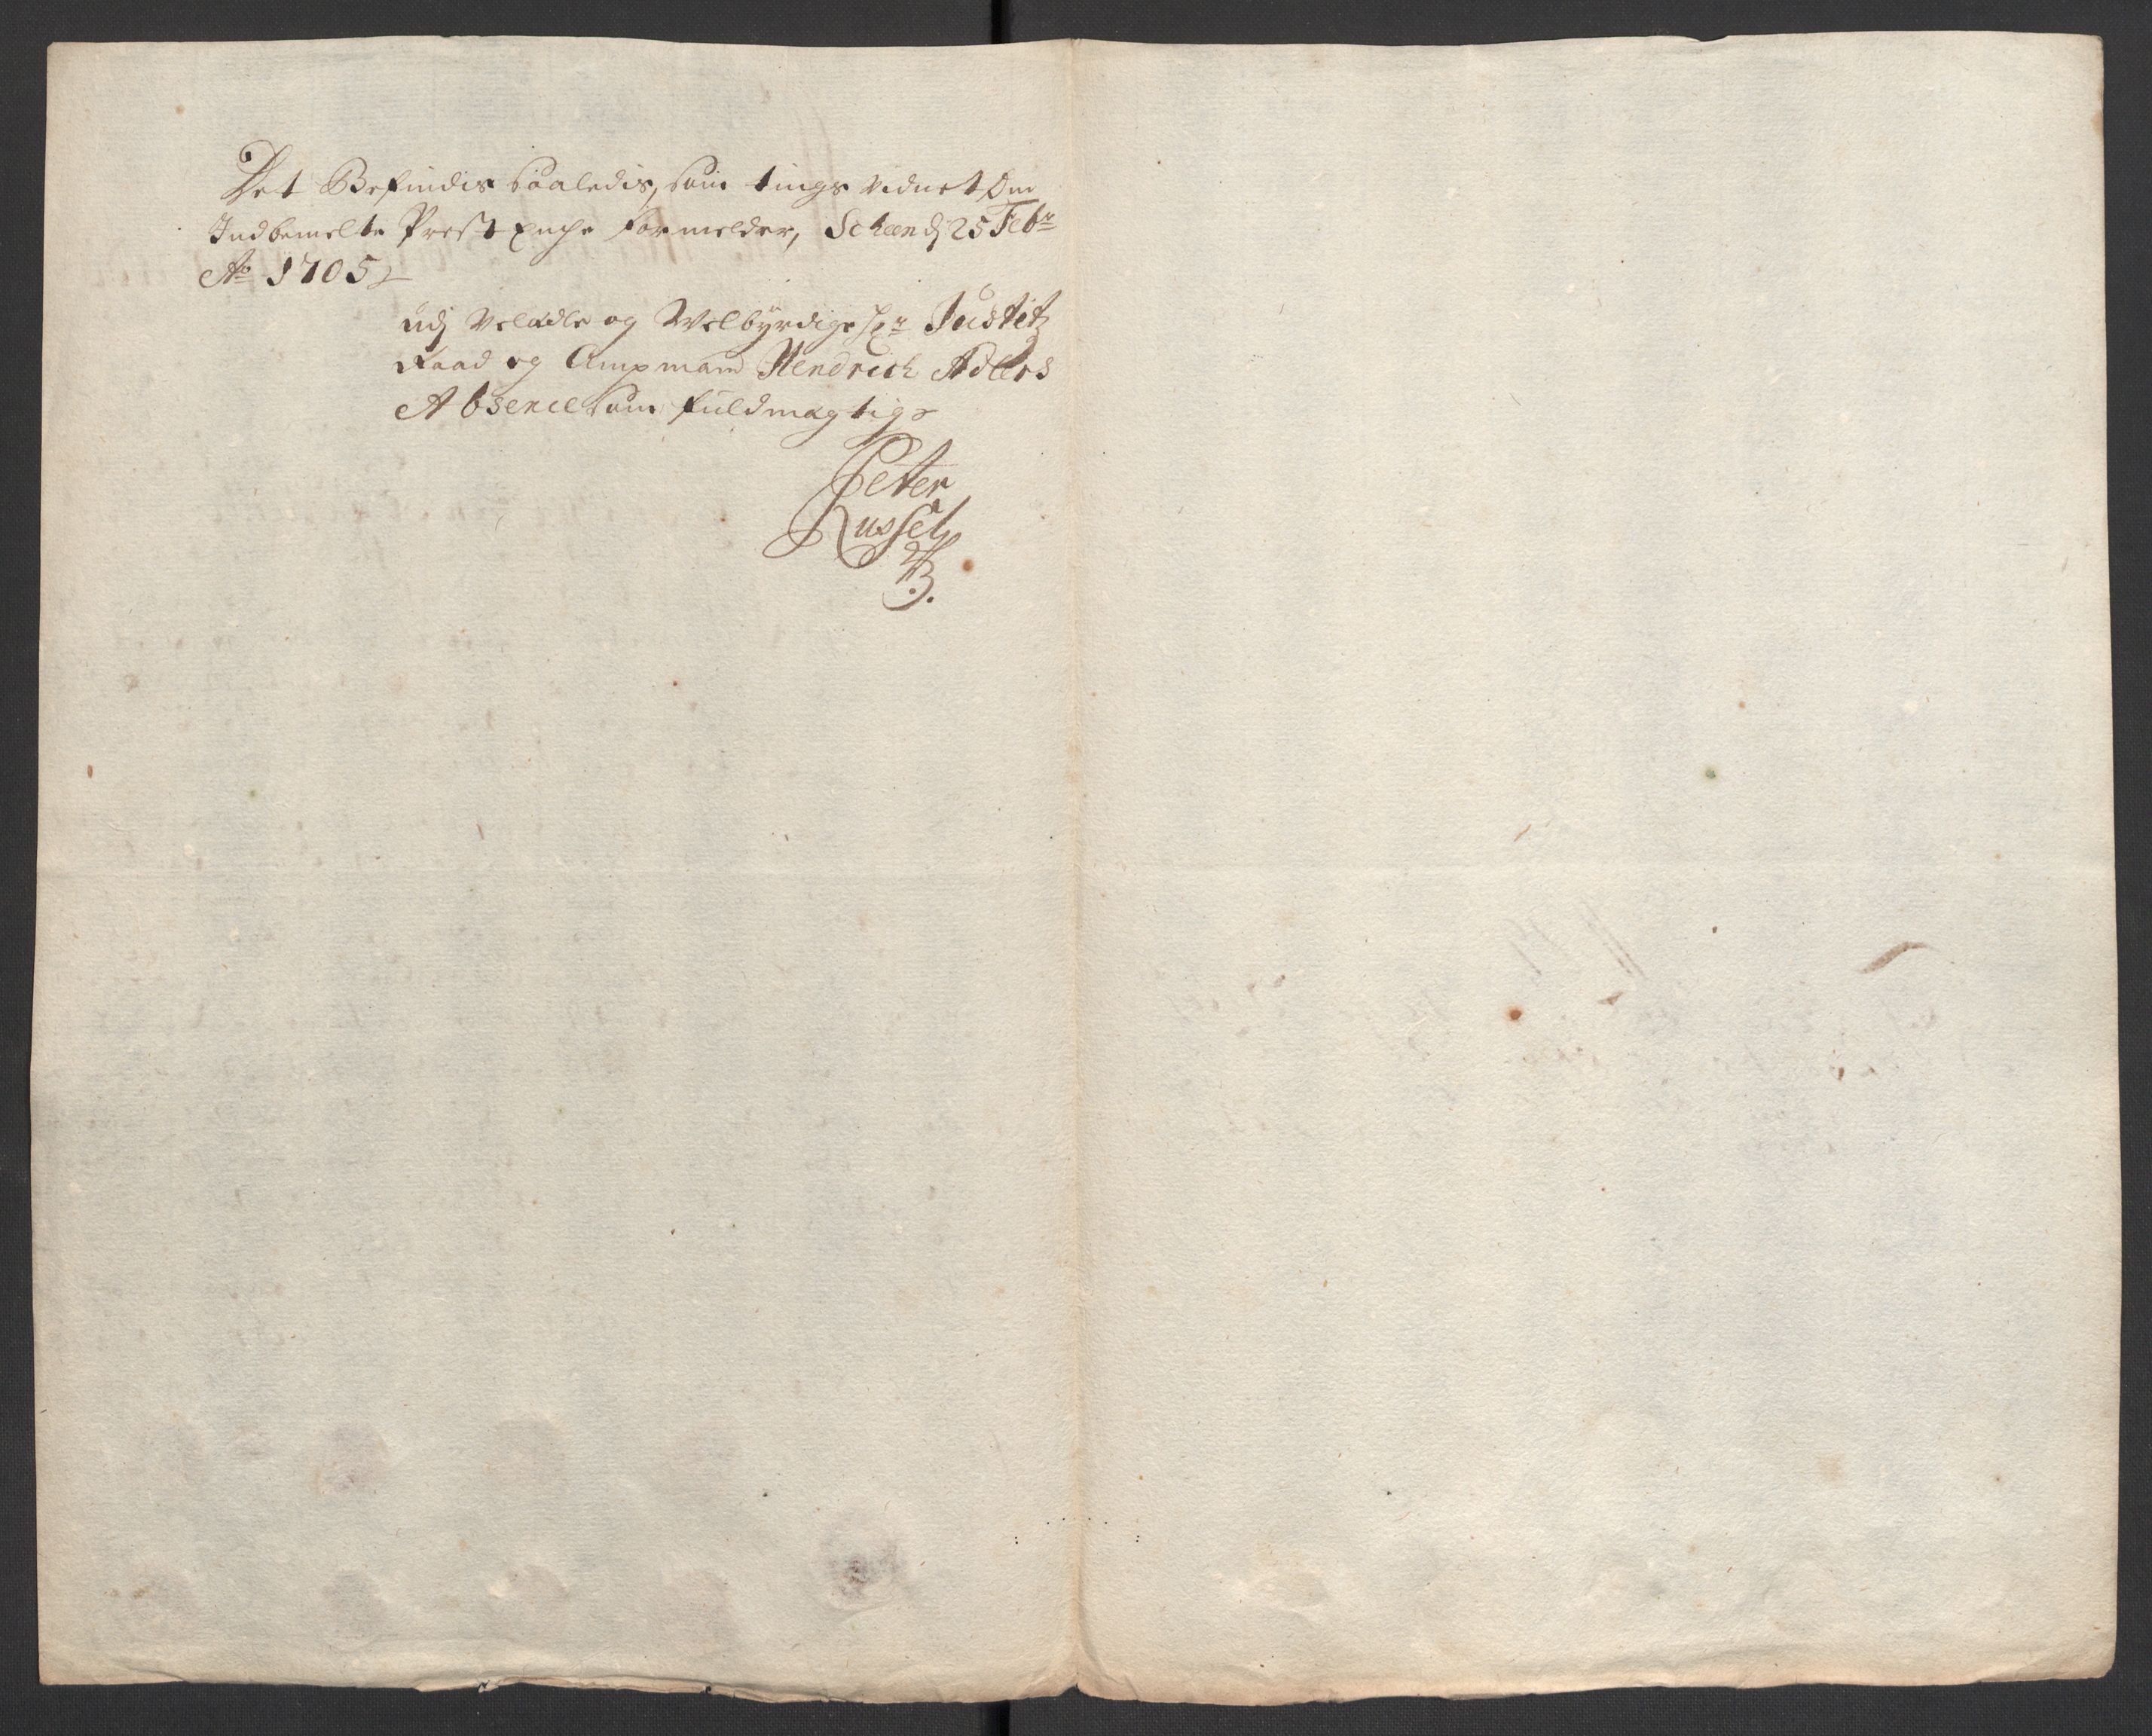 Det Befindis saaledis, som tings vidnet Om
Indbemelte Prest Enche formelder, Scheen dj 25 Febr
Ao 1705
udj Velædle og Welbÿrdige Hr Justitz
Raad og Ampmand Hendrich Adlers
Absence som fuldmægtige
Peter
Russel